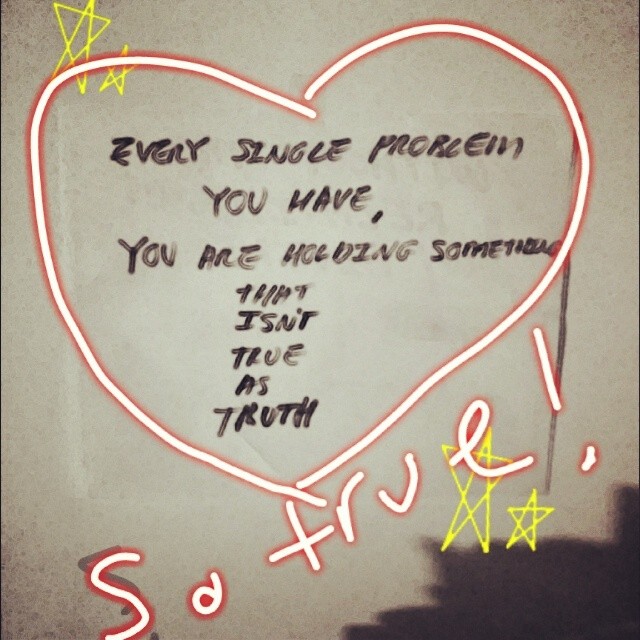 EVERY SINGLE PROBLEM
YOU HAVE,
YOU ARE HOLDING SOMETHING
THAT
ISN'T
TRUE
AS
TRUTH
So true!